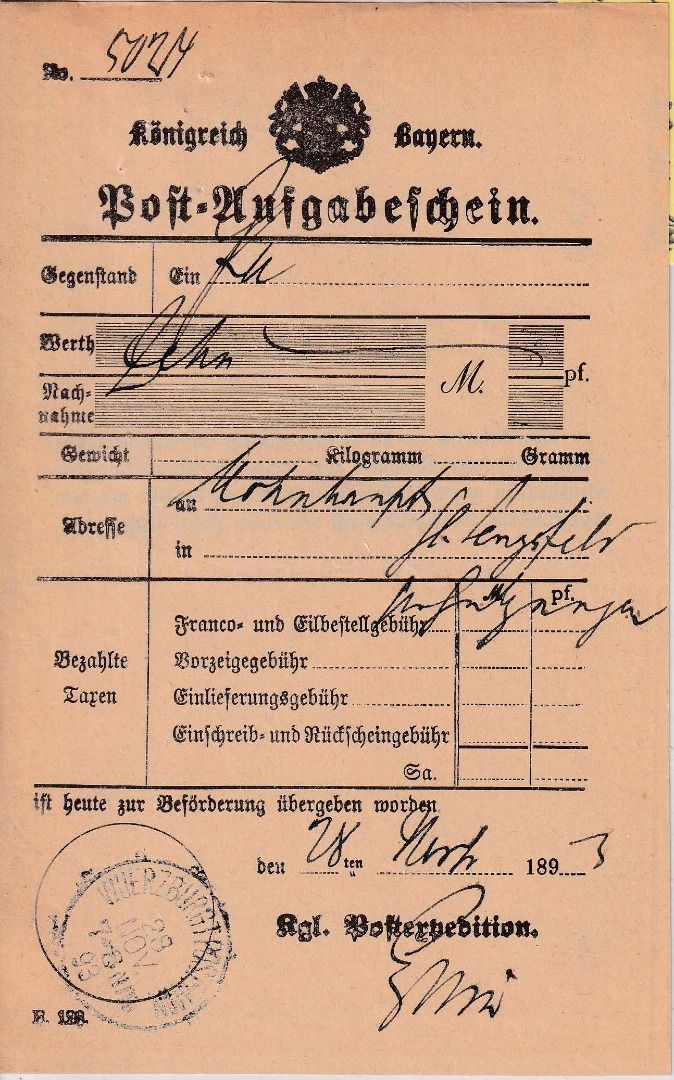 No. 5024
Königreich Bayern.
Post-Aufgabeschein.
Gegenstand Ein
Werth Zehn M. pf.
Nach-
nahme
Gewicht Kilogramm Gramm
Adresse an Mohnhaupt
in Lengsfeld
M. pf.
Franco- und Eilbestellgebühr
Bezahlte Vorzeigegebühr
Taxen Einlieferungsgebühr
Einschreib- und Rückscheingebühr
Sa.
ist heute zur Beförderung übergeben worden
den 28ten Nov 1893
Kgl. Postexpedition.
WUERZBURG
28
NOV
7-8 NM
93